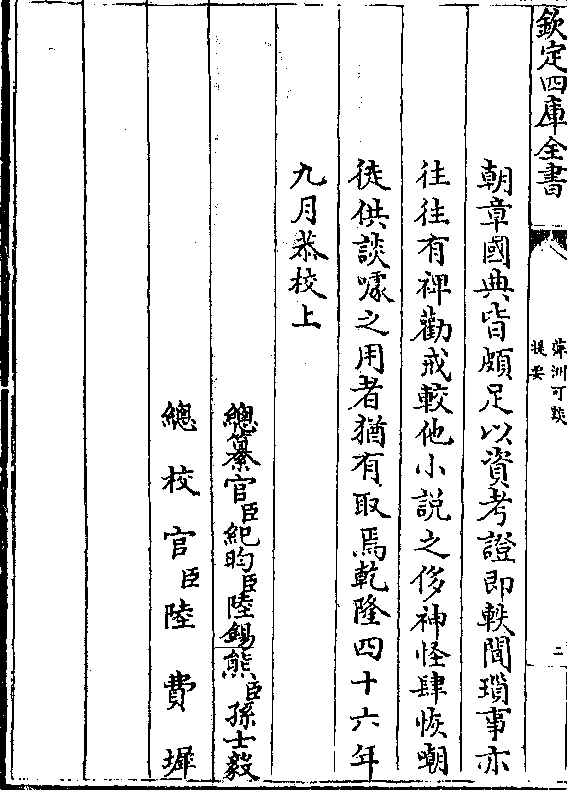 欽定四庫全書
萍洲可談
提要
二
朝章國典皆頗足以資考證即軼聞瑣事亦
往往有裨勸戒較他小説之侈神怪肆恢嘲
徒供談噱之用者猶有取焉乾隆四十六年
九月恭校上
總纂官臣紀昀臣陸錫熊臣孫士毅
總校官臣陸費墀